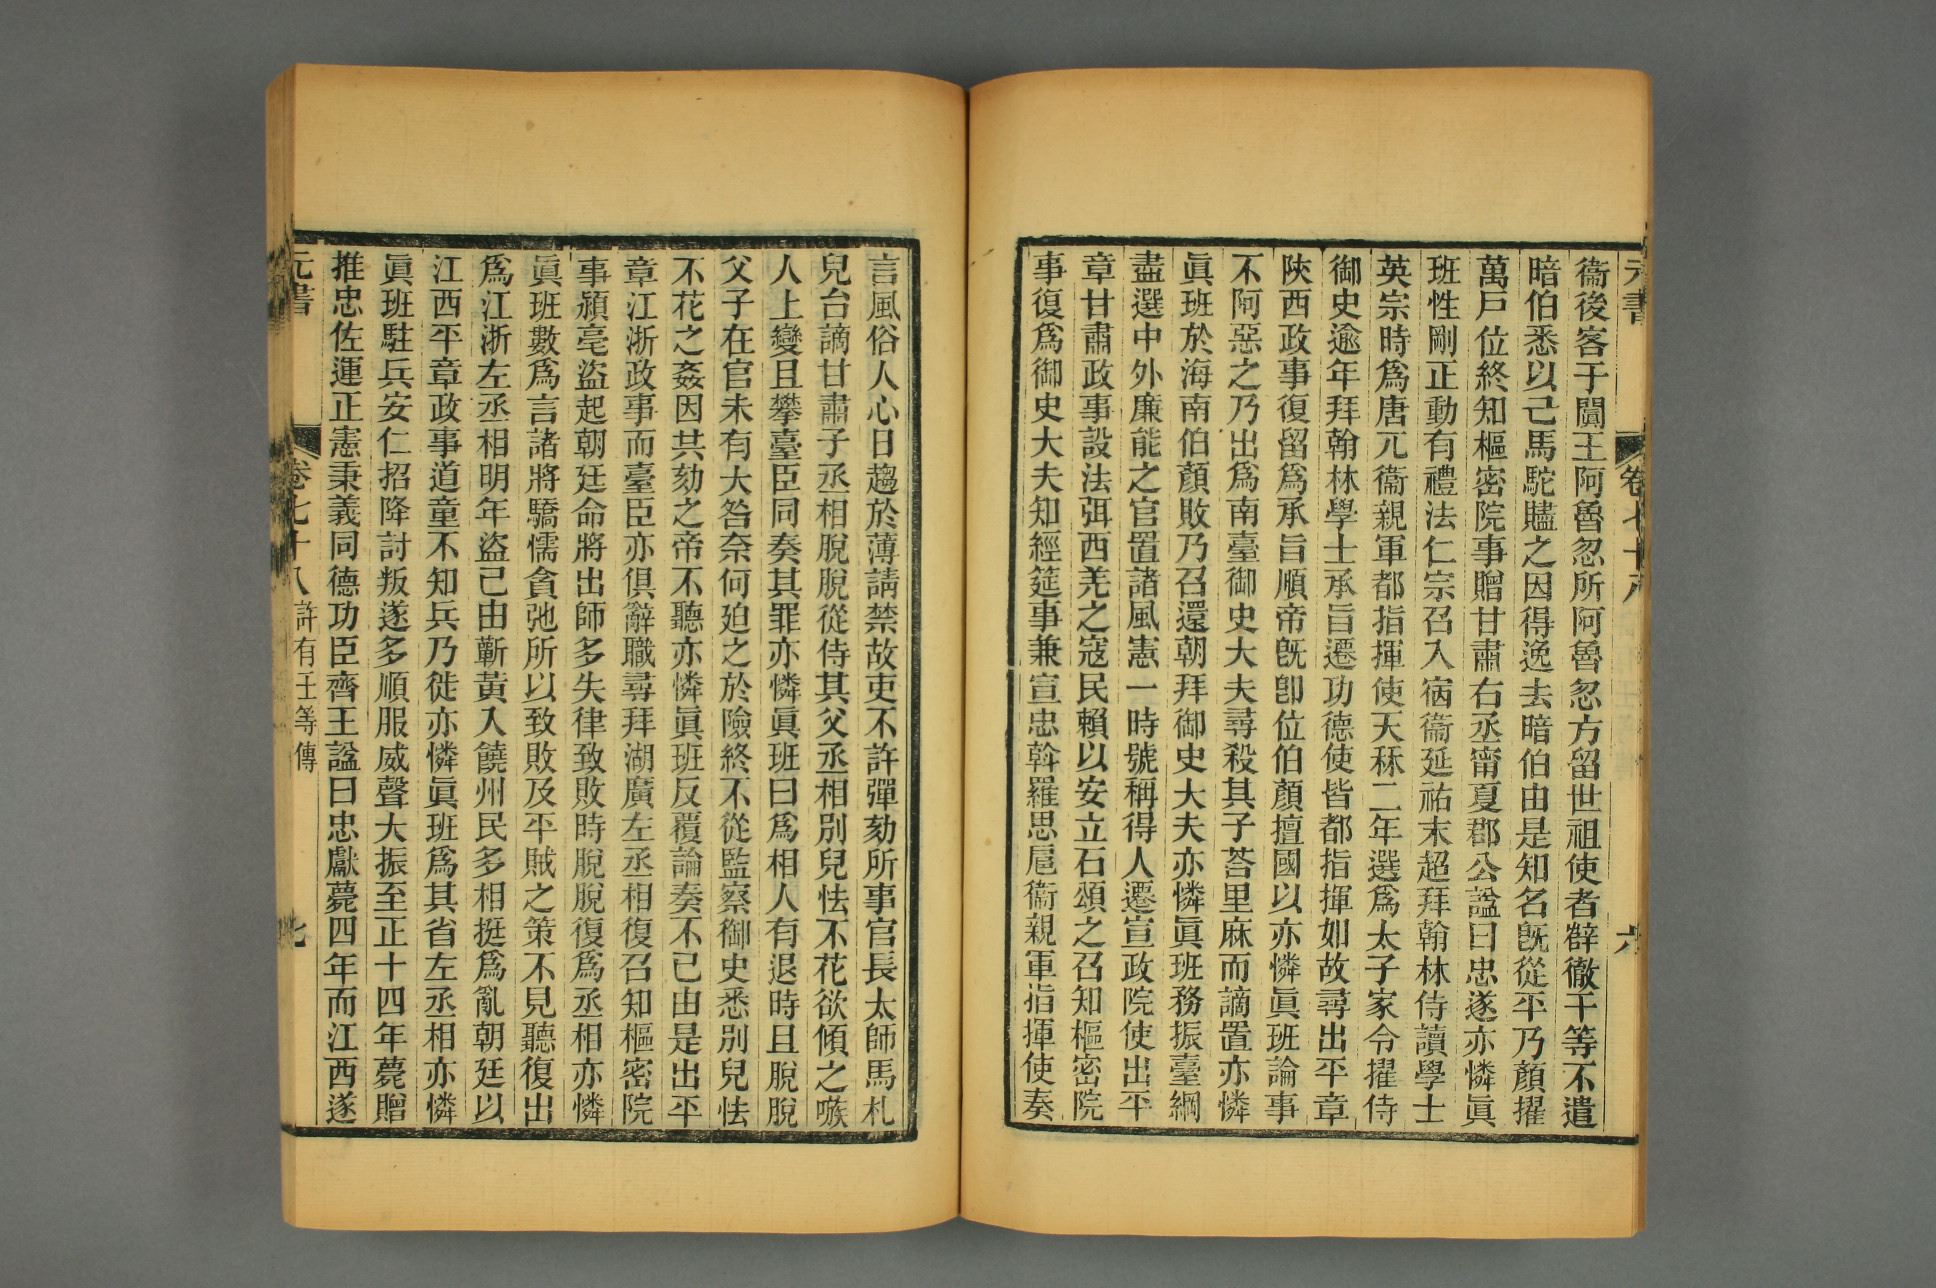 元書
卷七十八
六
衞後客于闐王阿魯忽所阿魯忽方留世祖使者辥徹干等不遣
暗伯悉以己馬駝贐之因得逸去暗伯由是知名旣從平乃顏擢
萬戸位終知樞密院事贈甘肅右丞甯夏郡公諡曰忠遂亦憐眞
班性剛正動有禮法仁宗召入宿衞延祐末超拜翰林侍讀學士
英宗時爲唐兀衞親軍都指揮使天秝二年選爲太子家令擢侍
御史逾年拜翰林學士承旨遷功德使皆都指揮如故尋出平章
陜西政事復留爲承旨順帝旣卽位伯顏擅國以亦憐眞班論事
不阿惡之乃出爲南臺御史大夫尋殺其子荅里麻而謫置亦憐
眞班於海南伯顏敗乃召還朝拜御史大夫亦憐眞班務振臺綱
盡選中外廉能之官置諸風憲一時號稱得人遷宣政院使出平
章甘肅政事設法弭西羌之寇民賴以安立石頌之召知樞密院
事復爲御史大夫知經筵事兼宣忠斡羅思扈衞親軍指揮使奏
言風俗人心日趨於薄請禁故吏不許彈劾所事官長太師馬札
兒台謫甘肅子丞相脫脫從侍其父丞相別兒怯不花欲傾之嗾
人上變且攀臺臣同奏其罪亦憐眞班曰爲相人有退時且脫脫
父子在官未有大咎奈何廹之於險終不從監察御史悉別兒怯
不花之姦因共劾之帝不聽亦憐眞班反覆論奏不已由是出平
章江浙政事而臺臣亦俱辭職尋拜湖廣左丞相復召知樞密院
事潁亳盜起朝廷命將出師多失律致敗時脫脫復爲丞相亦憐
眞班數爲言諸將驕懦貪弛所以致敗及平賊之策不見聽復出
爲江浙左丞相明年盜已由蘄黃入饒州民多相挺爲亂朝廷以
江西平章政事道童不知兵乃徙亦憐眞班爲其省左丞相亦憐
眞班駐兵安仁招降討叛遂多順服威聲大振至正十四年薨贈
推忠佐運正憲秉義同德功臣齊王諡曰忠獻薨四年而江西遂
元書
卷七十八 許有壬等傳
七